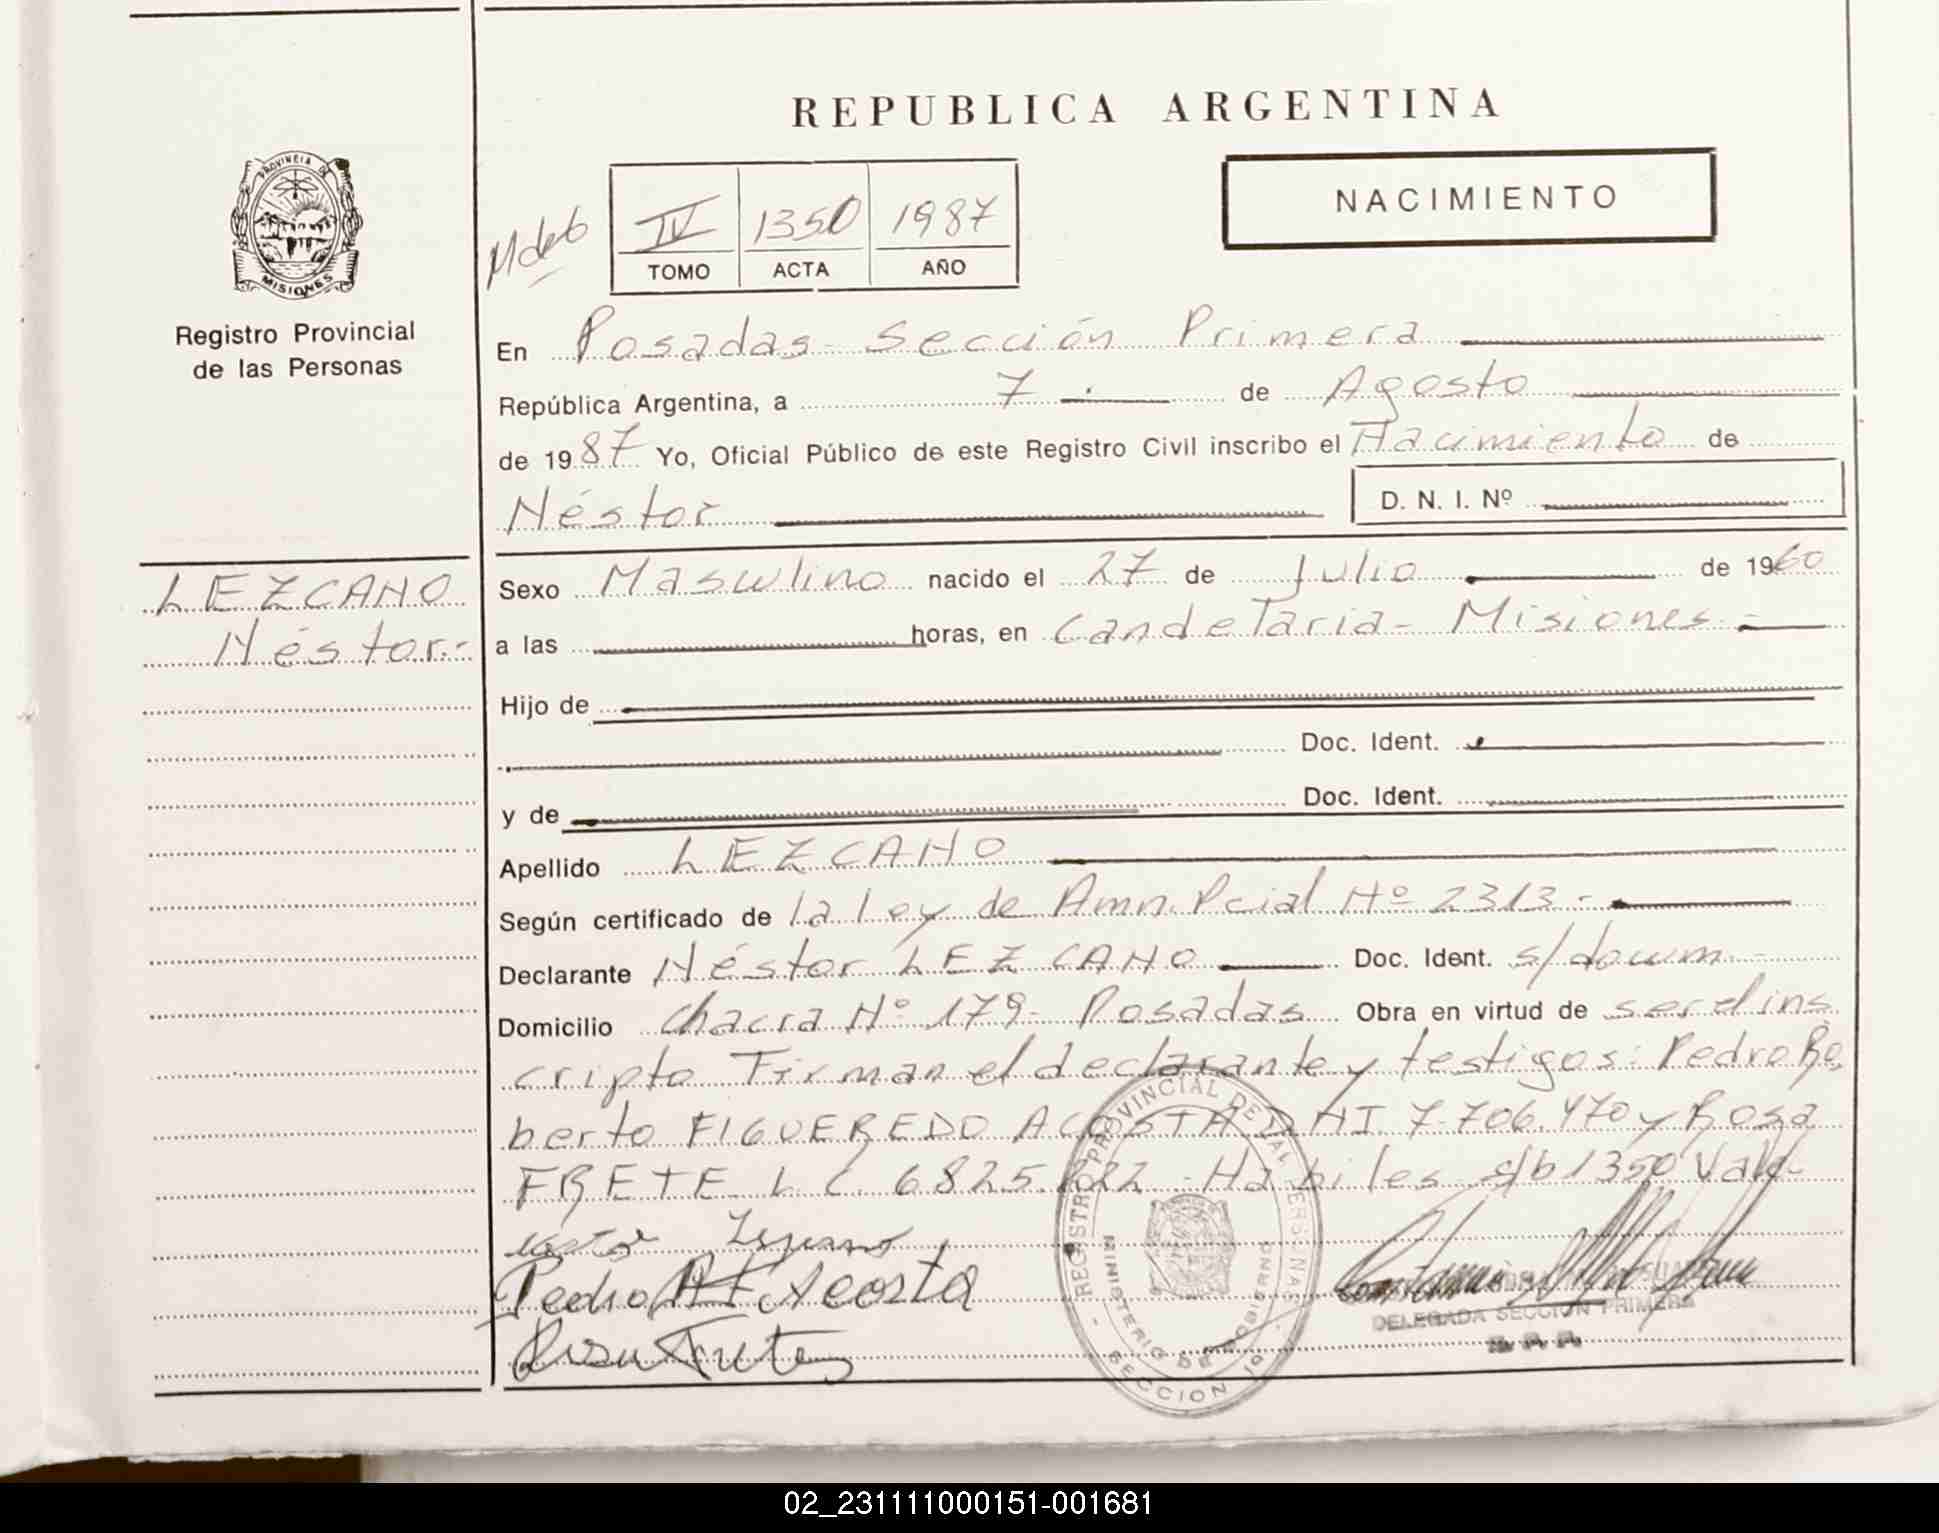 REPUBLICA ARGENTINA
PROVINCIA DE
MISIONES
Registro Provincial
de las Personas
IV 1350 1987
TOMO ACTA AÑO
NACIMIENTO
En Posadas - Sección Primera
República Argentina, a 7 de Agosto
de 1987 Yo, Oficial Público de este Registro Civil inscribo el Nacimiento de
Néstor D. N. I. Nº
LEZCANO
Néstor.-
Sexo Masculino nacido el 27 de Julio de 1960
a las horas, en Candelaria - Misiones -
Hijo de
Doc. Ident.
y de Doc. Ident.
Apellido LEZCANO
Según certificado de la ley de Amn. Pcial Nº 2313.-
Declarante Néstor LEZCANO Doc. Ident. s/docum.
Domicilio Chacra Nº 179- Posadas Obra en virtud de ser el ins
cripto Firman el declarante y testigos: Pedro Ro
berto FIGUEREDO ACOSTA DNI 7.706.470 y Rosa
FRETE L C 6825.222 - Habiles s/b 1350 Vale-
Pedro Acosta
REGISTRO PROVINCIAL DE LAS PERSONAS
MINISTERIO DE GOBIERNO
SECCION 1º
DELEGADA SECCION PRIMERA
02_231111000151-001681